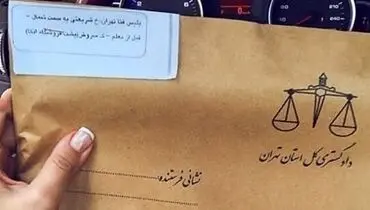 پلیس فتا تهران: خ شریعتی به سمت شمال -
قبل از معلم - ک سم
دادگستری کل استان تهران
نشانی فرستنده: